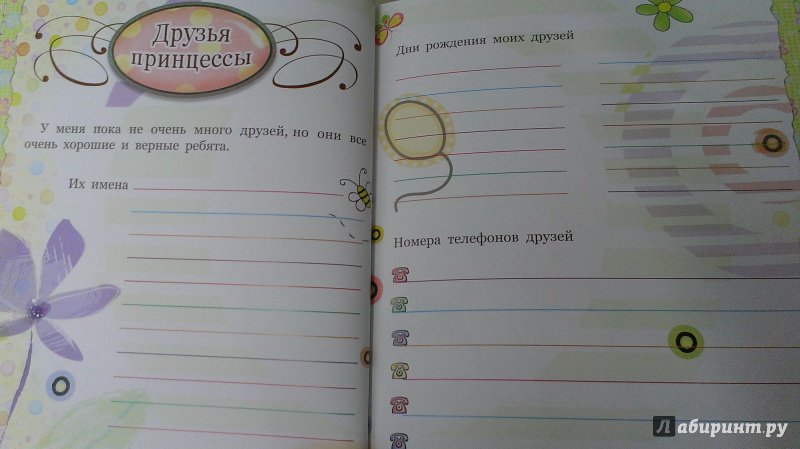 Друзья
принцессы
У меня пока не очень много друзей, но они все
очень хорошие и верные ребята.
Их имена
Дни рождения моих друзей
Номера телефонов друзей
Лабиринт.ру